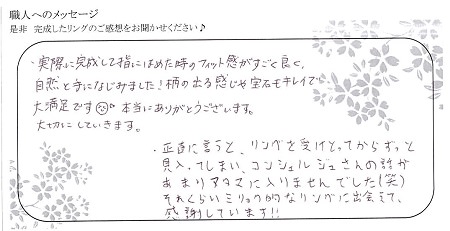 職人へのメッセージ
是非 完成したリングのご感想をお聞かせください♪
・実際に完成して指にはめた時のフィット感がすごく良く、
自然と手になじみました!柄の出る感じや宝石もキレイで
大満足です 本当にありがとうございます。
大切にしていきます。
・正直に言うと、リングを受けとってからずっと
見入ってしまい、コンシェルジュさんの話が
あまりアタマに入りませんでした(笑)
それくらいミリョク的なリングに出会えて、
感謝しています!!